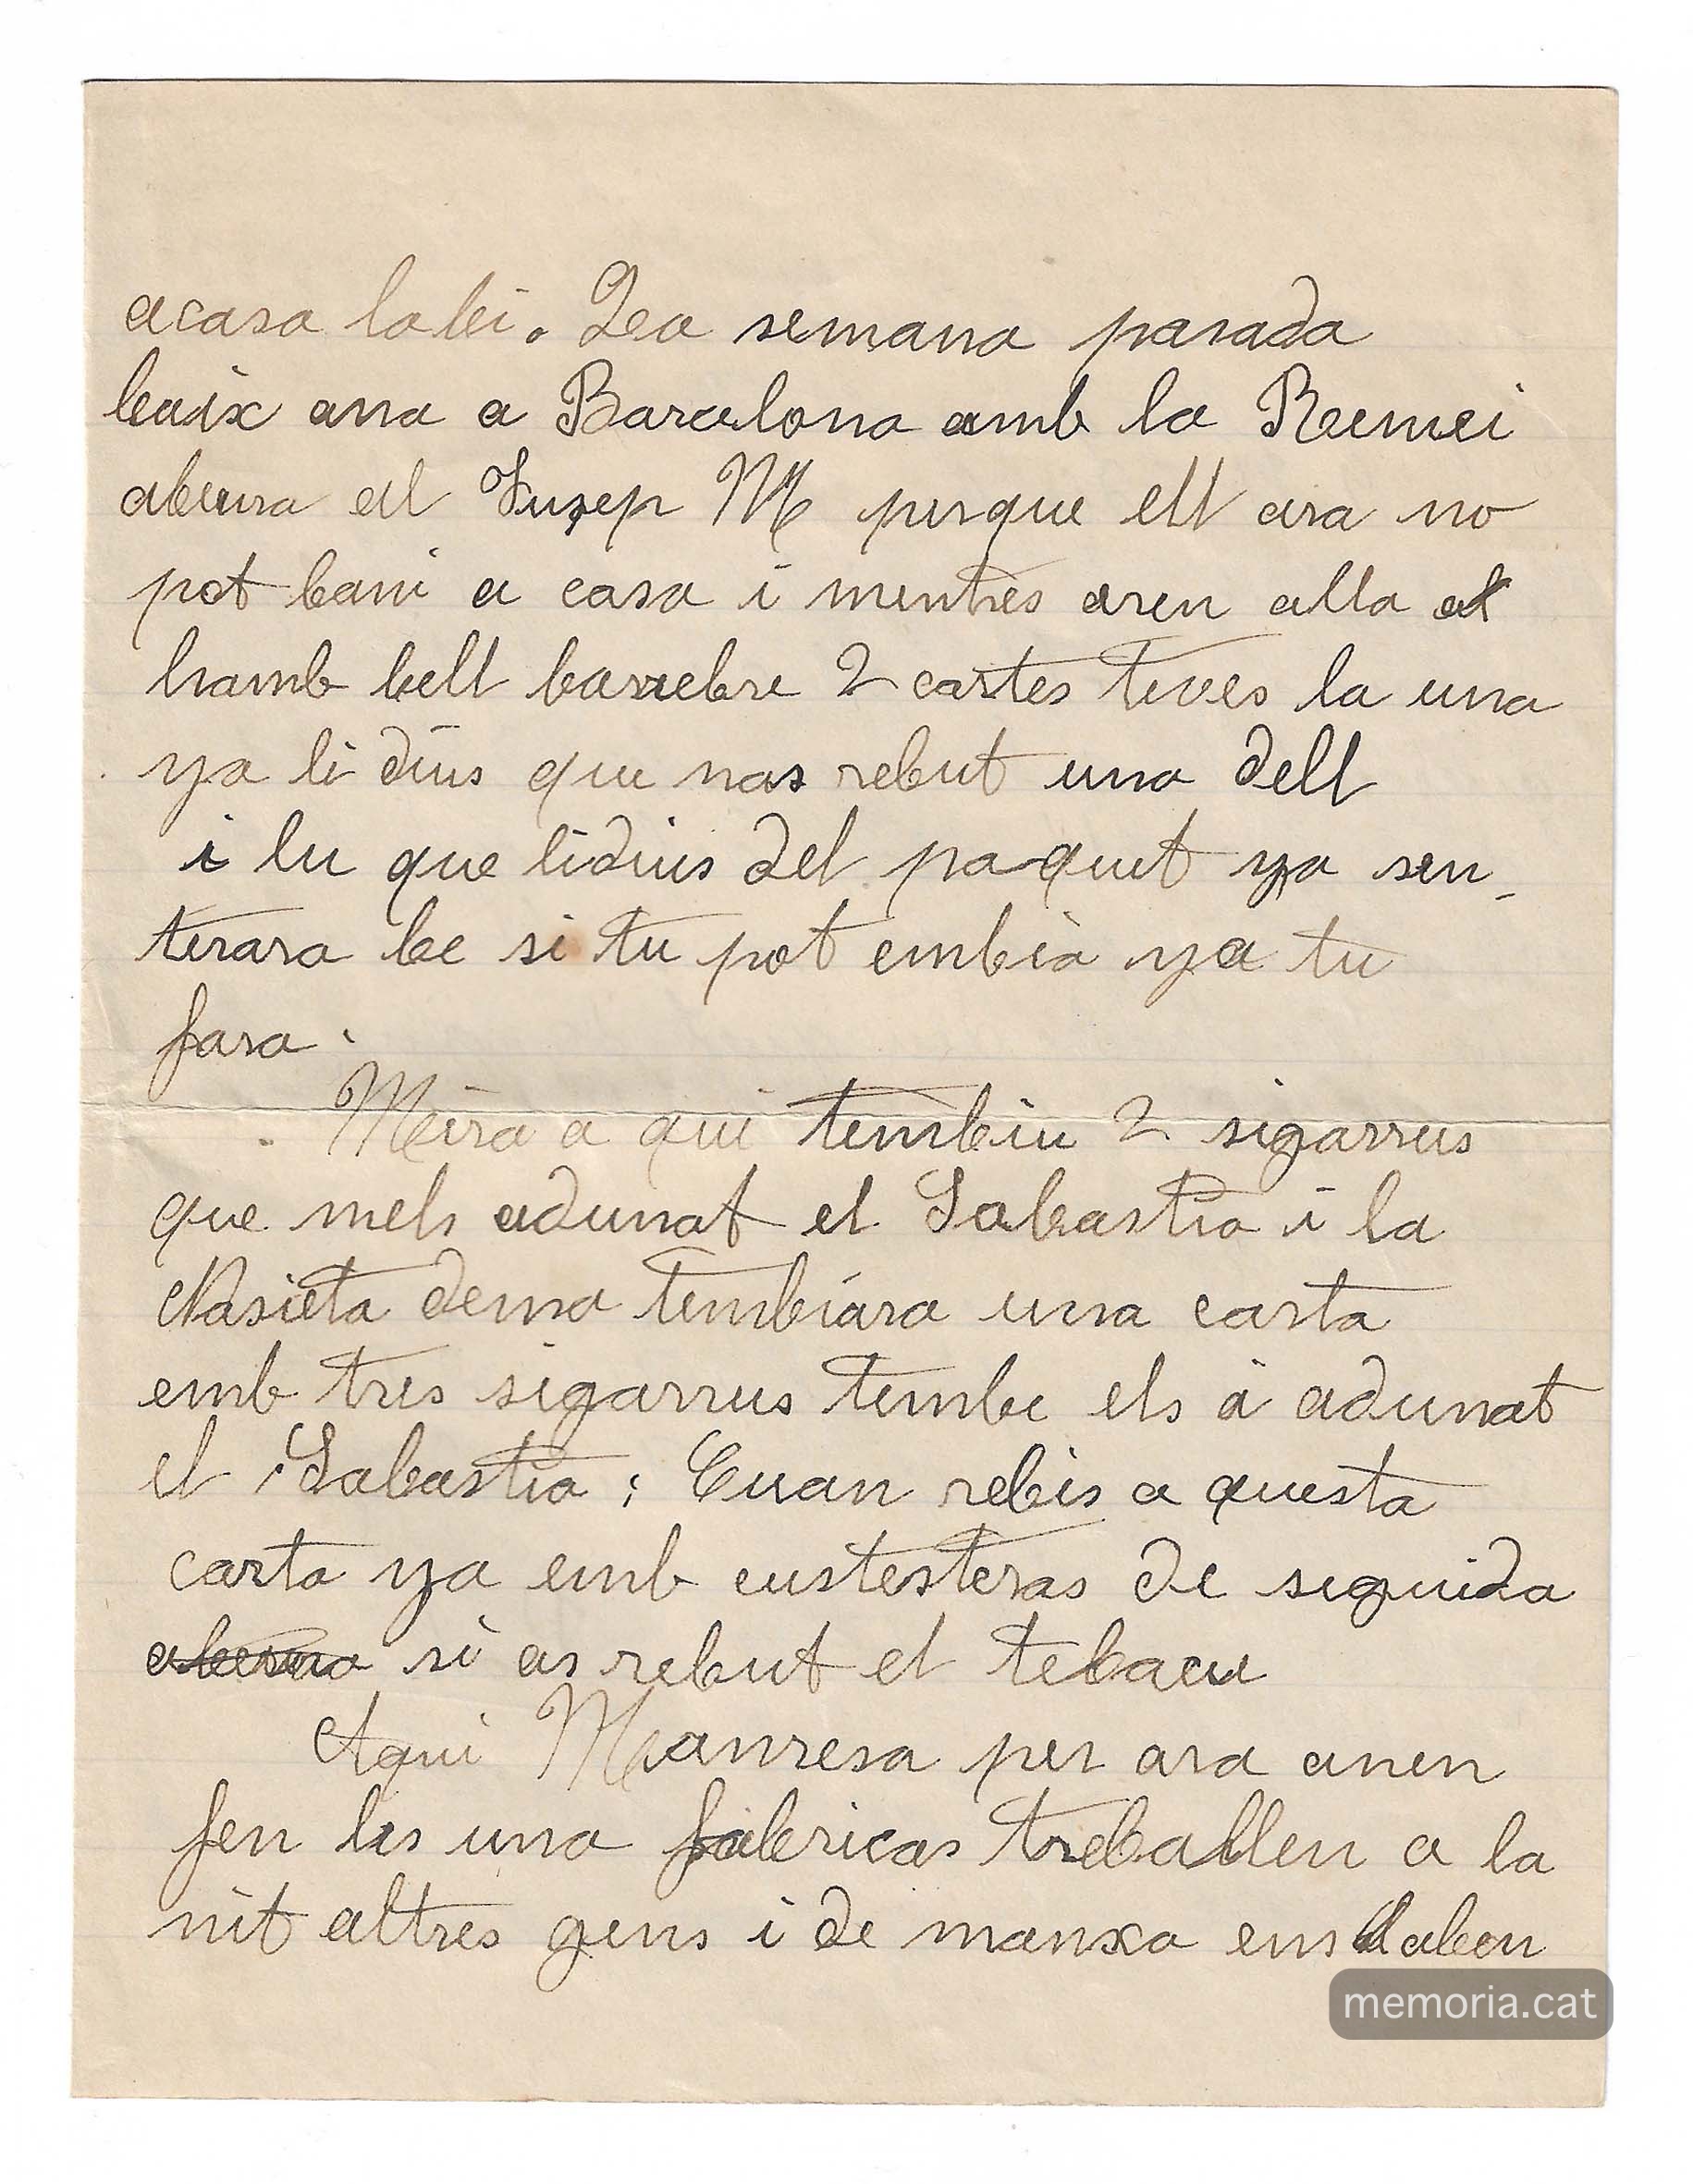 acasa labi. La semana pasada
baix ana a Barcelona amb la Remei
abeura el Jusep M perque ell ara no
pot bani a casa i mentres aren alla
hamb bell barrebre 2 cartes teves la una
ya li dius que nas rebut una dell
i lu que lidius del paquet ya sen-
terara be si tu pot embia ya tu
fara.
Mira a qui tembiu 2 sigarrus
que mels adunat el Sabastia i la
Nasieta dema tembiara una carta
emb tres sigarrus tembe els à adunat
el Sabastia; Cuan rebis a questa
carta ya emb custesteras de seguida
si as rebut el tebacu
Aqui Manresa per ara anen
fen les una fabricas treballen a la
nit altres gens i de manxa ens daben
memoria.cat